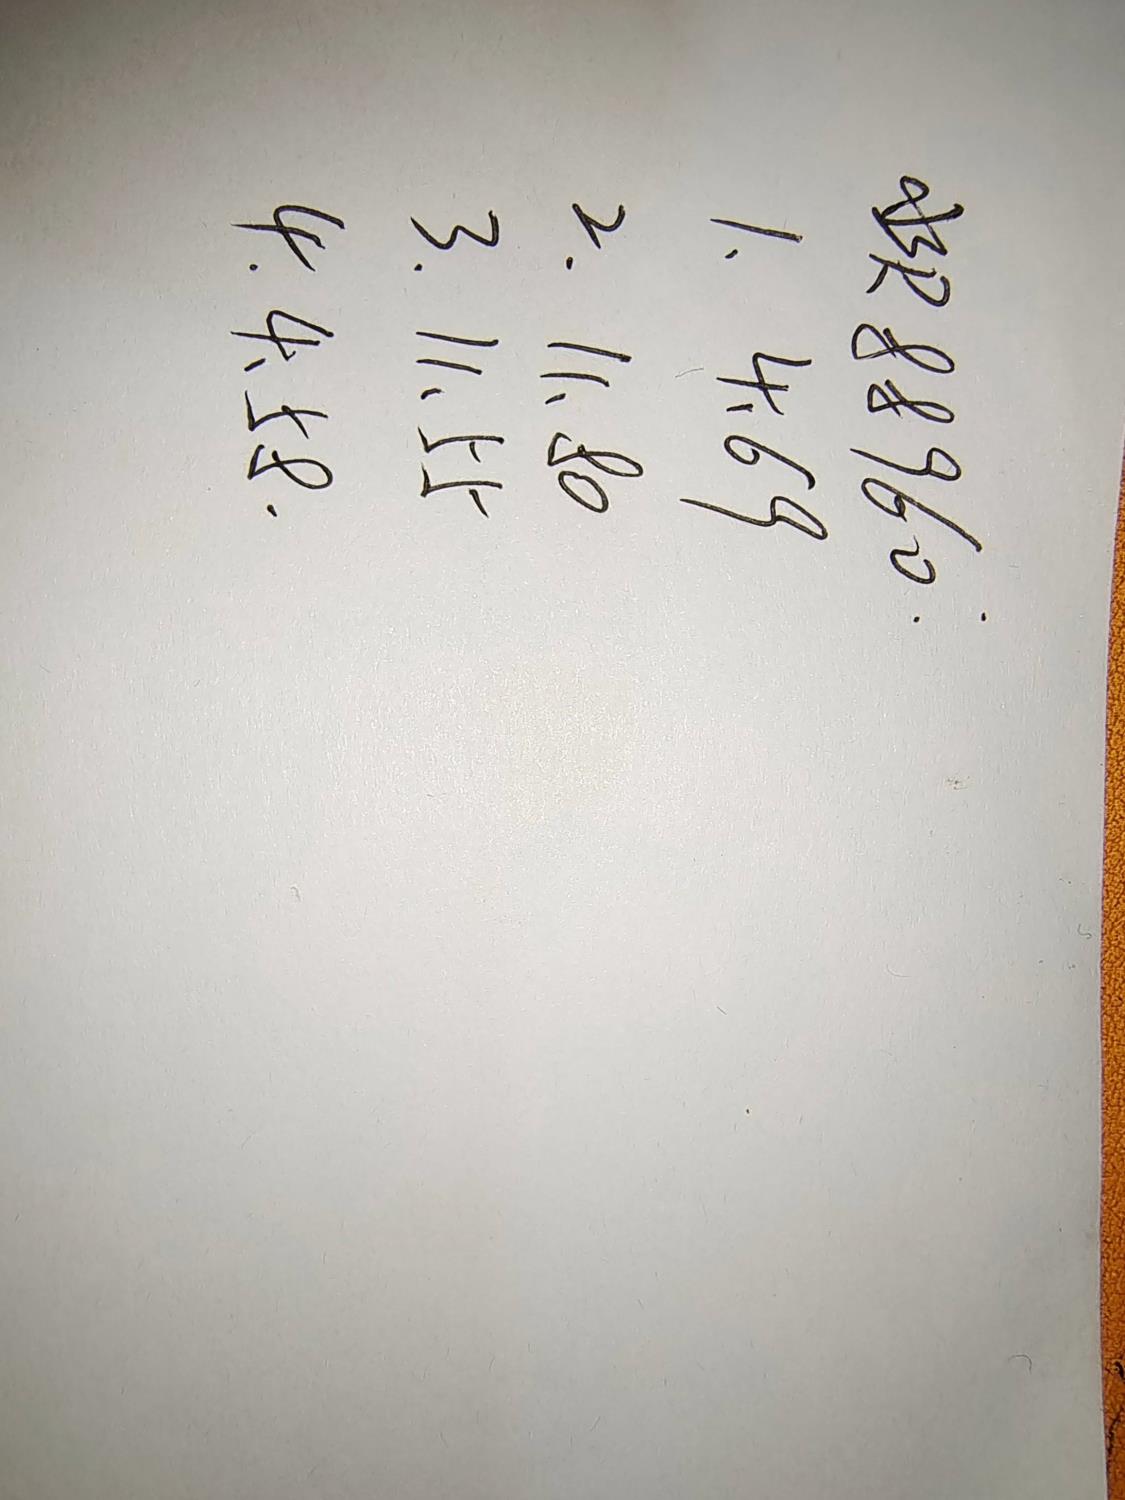 BR88960.
1. 4.69
2. 11.80
3. 11.55
4. 4.58.